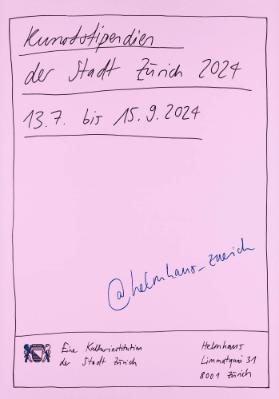 Kunststipendien
der Stadt Zürich 2024
13.7. bis 15.9.2024
@helmhaus_zuerich
Eine Kulturinstitution
der Stadt Zürich
Helmhaus
Limmatquai 31
8001 Zürich